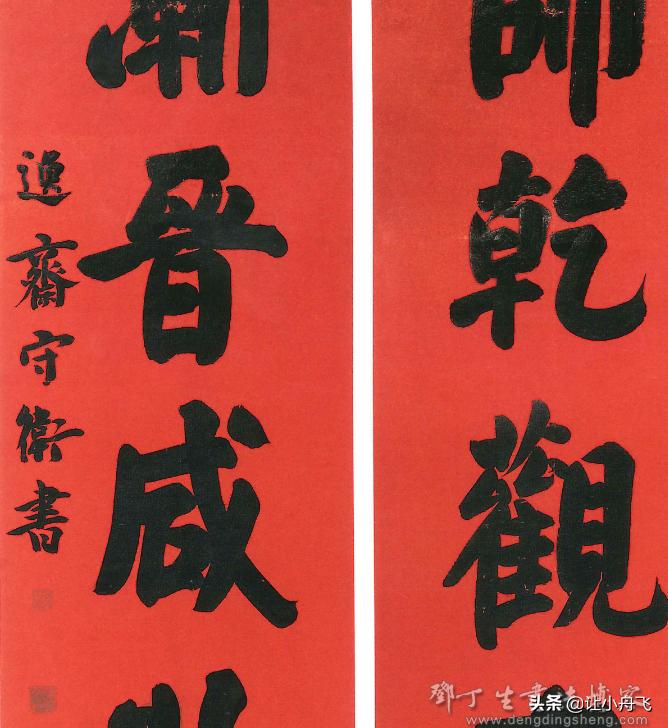 師乾觀
晉咸
逸齋守衛書
鄧丁生書法博客
头条 @让小丹飞
www.dengdingsheng.com